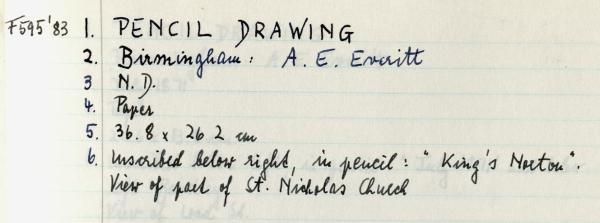 F595'83 1. PENCIL DRAWING
2. Birmingham: A. E. Everitt
3 N.D.
4. Paper
5. 36.8 x 26.2 cm
6. Inscribed below right, in pencil: "King's Norton".
View of part of St. Nicholas Church